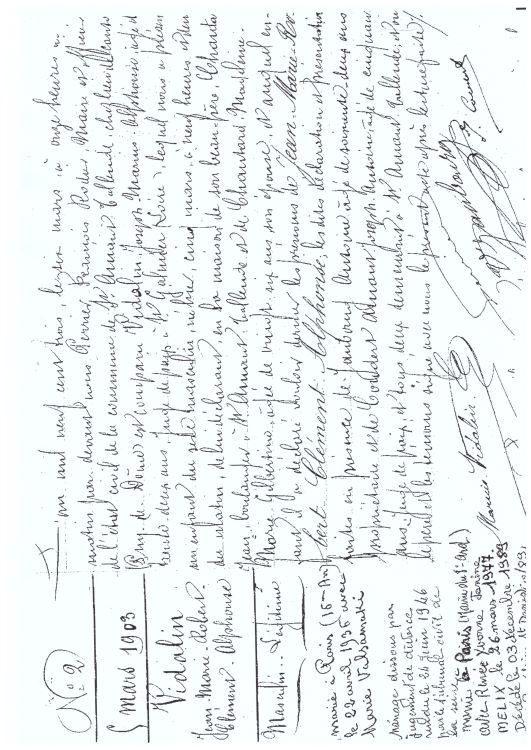 N° 2
5 mars 1903
Vidalin
Jean-Marie-Robert-
Clément-Alphonse
Masculin - Légitime
marié à Paris (16e Arr)
le 22 avril 1936 avec
Marie Valsamaki
Mariage dissous par
jugement de divorce
rendu le 24 juin 1946
par le tribunal civil de
la Seine
marié à Paris
avec Renée Yvonne Janine
MELIX le 26 mars 1977
Décédé le 03 décembre 1989
L'an mil neuf cent trois, le six mars à onze heures du
matin, par devant nous Perrier François Maire et officier
de l'état civil de la commune de St Amant Tallende, chef lieu de canton
Puy-de-Dôme est comparu Vidalin Joseph Marius Alphonse âgé de
trente deux ans juge de paix à St Galmier Loire, lequel nous a présenté
un enfant du sexe masculin né hier, cinq mars à neuf heures et demie
du matin, de lui déclarant, en la maison de son beau-père, Chautard
Jean, boulanger à St Amant Tallende et de Chautard Madeleine-
Marie-Gilbertine, âgée de vingt six ans son épouse, et auquel en-
fant il a déclaré vouloir donner les prénoms de Jean-Marie-Ro-
bert Clément Alphonse, les dites déclaration et présentation
faites en présence de Antoine âgé de soixante deux ans
propriétaire et de Amant Joseph Antoine, âgé de cinquante
ans, juge de paix et tous deux demeurant à St Amant Tallende, et ont
le père et les témoins signé avec nous le présent acte après lecture faite.
Marius Vidalin